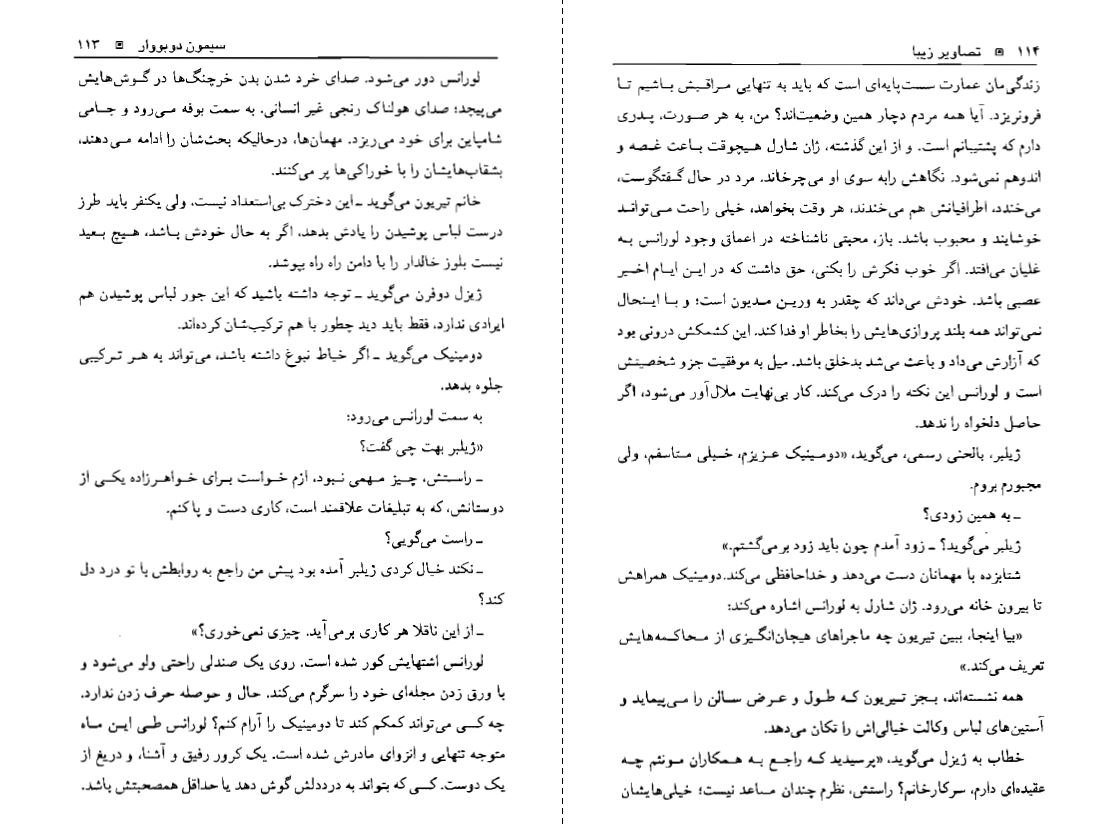 سیمون دوبووار ▣ ۱۱۳
لورانس دور می‌شود. صدای خرد شدن بدن خرچنگ‌ها در گوش‌هایش
می‌پیچد؛ صدای هولناک رنجی غیر انسانی. به سمت بوفه می‌رود و جامی
شامپاین برای خود می‌ریزد. مهمان‌ها، درحالیکه بحث‌شان را ادامه می‌دهند،
بشقاب‌هایشان را با خوراکی‌ها پر می‌کنند.
خانم تیریون می‌گوید ـ این دخترک بی‌استعداد نیست، ولی یکنفر باید طرز
درست لباس پوشیدن را یادش بدهد، اگر به حال خودش باشد، هیچ بعید
نیست بلوز خالدار را با دامن راه راه بپوشد.
ژیزل دوفرن می‌گوید ـ توجه داشته باشید که این جور لباس پوشیدن هم
ایرادی ندارد، فقط باید دید چطور با هم ترکیب‌شان کرده‌اند.
دومینیک می‌گوید ـ اگر خیاط نبوغ داشته باشد، می‌تواند به هر ترکیبی
جلوه بدهد.
به سمت لورانس می‌رود:
«ژیلبر بهت چی گفت؟
ـ راستش، چیز مهمی نبود، ازم خواست برای خواهرزاده یکی از
دوستانش، که به تبلیغات علاقمند است، کاری دست و پا کنم.
ـ راست می‌گویی؟
ـ نکند خیال کردی ژیلبر آمده بود پیش من راجع به روابطش با تو درد دل
کند؟
ـ از این ناقلا هر کاری برمی‌آید. چیزی نمی‌خوری؟»
لورانس اشتهایش کور شده است. روی یک صندلی راحتی ولو می‌شود و
با ورق زدن مجله‌ای خود را سرگرم می‌کند. حال و حوصله حرف زدن ندارد.
چه کسی می‌تواند کمکم کند تا دومینیک را آرام کنم؟ لورانس طی این ماه
متوجه تنهایی و انزوای مادرش شده است. یک کرور رفیق و آشنا، و دریغ از
یک دوست. کسی که بتواند به درددلش گوش دهد یا حداقل همصحبتش باشد.
۱۱۴ ▣ تصاویر زیبا
زندگی‌مان عمارت سست‌پایه‌ای است که باید به تنهایی مراقبش باشیم تا
فرونریزد. آیا همه مردم دچار همین وضعیت‌اند؟ من، به هر صورت، پدری
دارم که پشتیبانم است. و از این گذشته، ژان شارل هیچوقت باعث غصه و
اندوهم نمی‌شود. نگاهش رابه سوی او می‌چرخاند. مرد در حال گفتگوست،
می‌خندد، اطرافیانش هم می‌خندند، هر وقت بخواهد، خیلی راحت می‌تواند
خوشایند و محبوب باشد. باز، محبتی ناشناخته در اعماق وجود لورانس به
غلیان می‌افتد. اگر خوب فکرش را بکنی، حق داشت که در این ایام اخیر
عصبی باشد. خودش می‌داند که چقدر به ورین مدیون است؛ و با اینحال
نمی‌تواند همه بلند پروازی‌هایش را بخاطر او فدا کند. این کشمکش درونی بود
که آزارش می‌داد و باعث می‌شد بدخلق باشد. میل به موفقیت جزو شخصیتش
است و لورانس این نکته را درک می‌کند. کار بی‌نهایت ملال‌آور می‌شود، اگر
حاصل دلخواه را ندهد.
ژیلبر، بالحنی رسمی، می‌گوید، «دومینیک عزیزم، خیلی متاسفم، ولی
مجبورم بروم.
ـ به همین زودی؟
ژیلبر می‌گوید؟ ـ زود آمدم چون باید زود برمی‌گشتم.»
شتابزده با مهمانان دست می‌دهد و خداحافظی می‌کند. دومینیک همراهش
تا بیرون خانه می‌رود. ژان شارل به لورانس اشاره می‌کند:
«بیا اینجا، ببین تیریون چه ماجراهای هیجان‌انگیزی از محاکمه‌هایش
تعریف می‌کند.»
همه نشسته‌اند، بجز تیریون که طول و عرض سالن را می‌پیماید و
آستین‌های لباس وکالت خیالی‌اش را تکان می‌دهد.
خطاب به ژیزل می‌گوید، «پرسیدید که راجع به همکاران مونثم چه
عقیده‌ای دارم، سرکارخانم؟ راستش، نظرم چندان مساعد نیست؛ خیلی‌هایشان